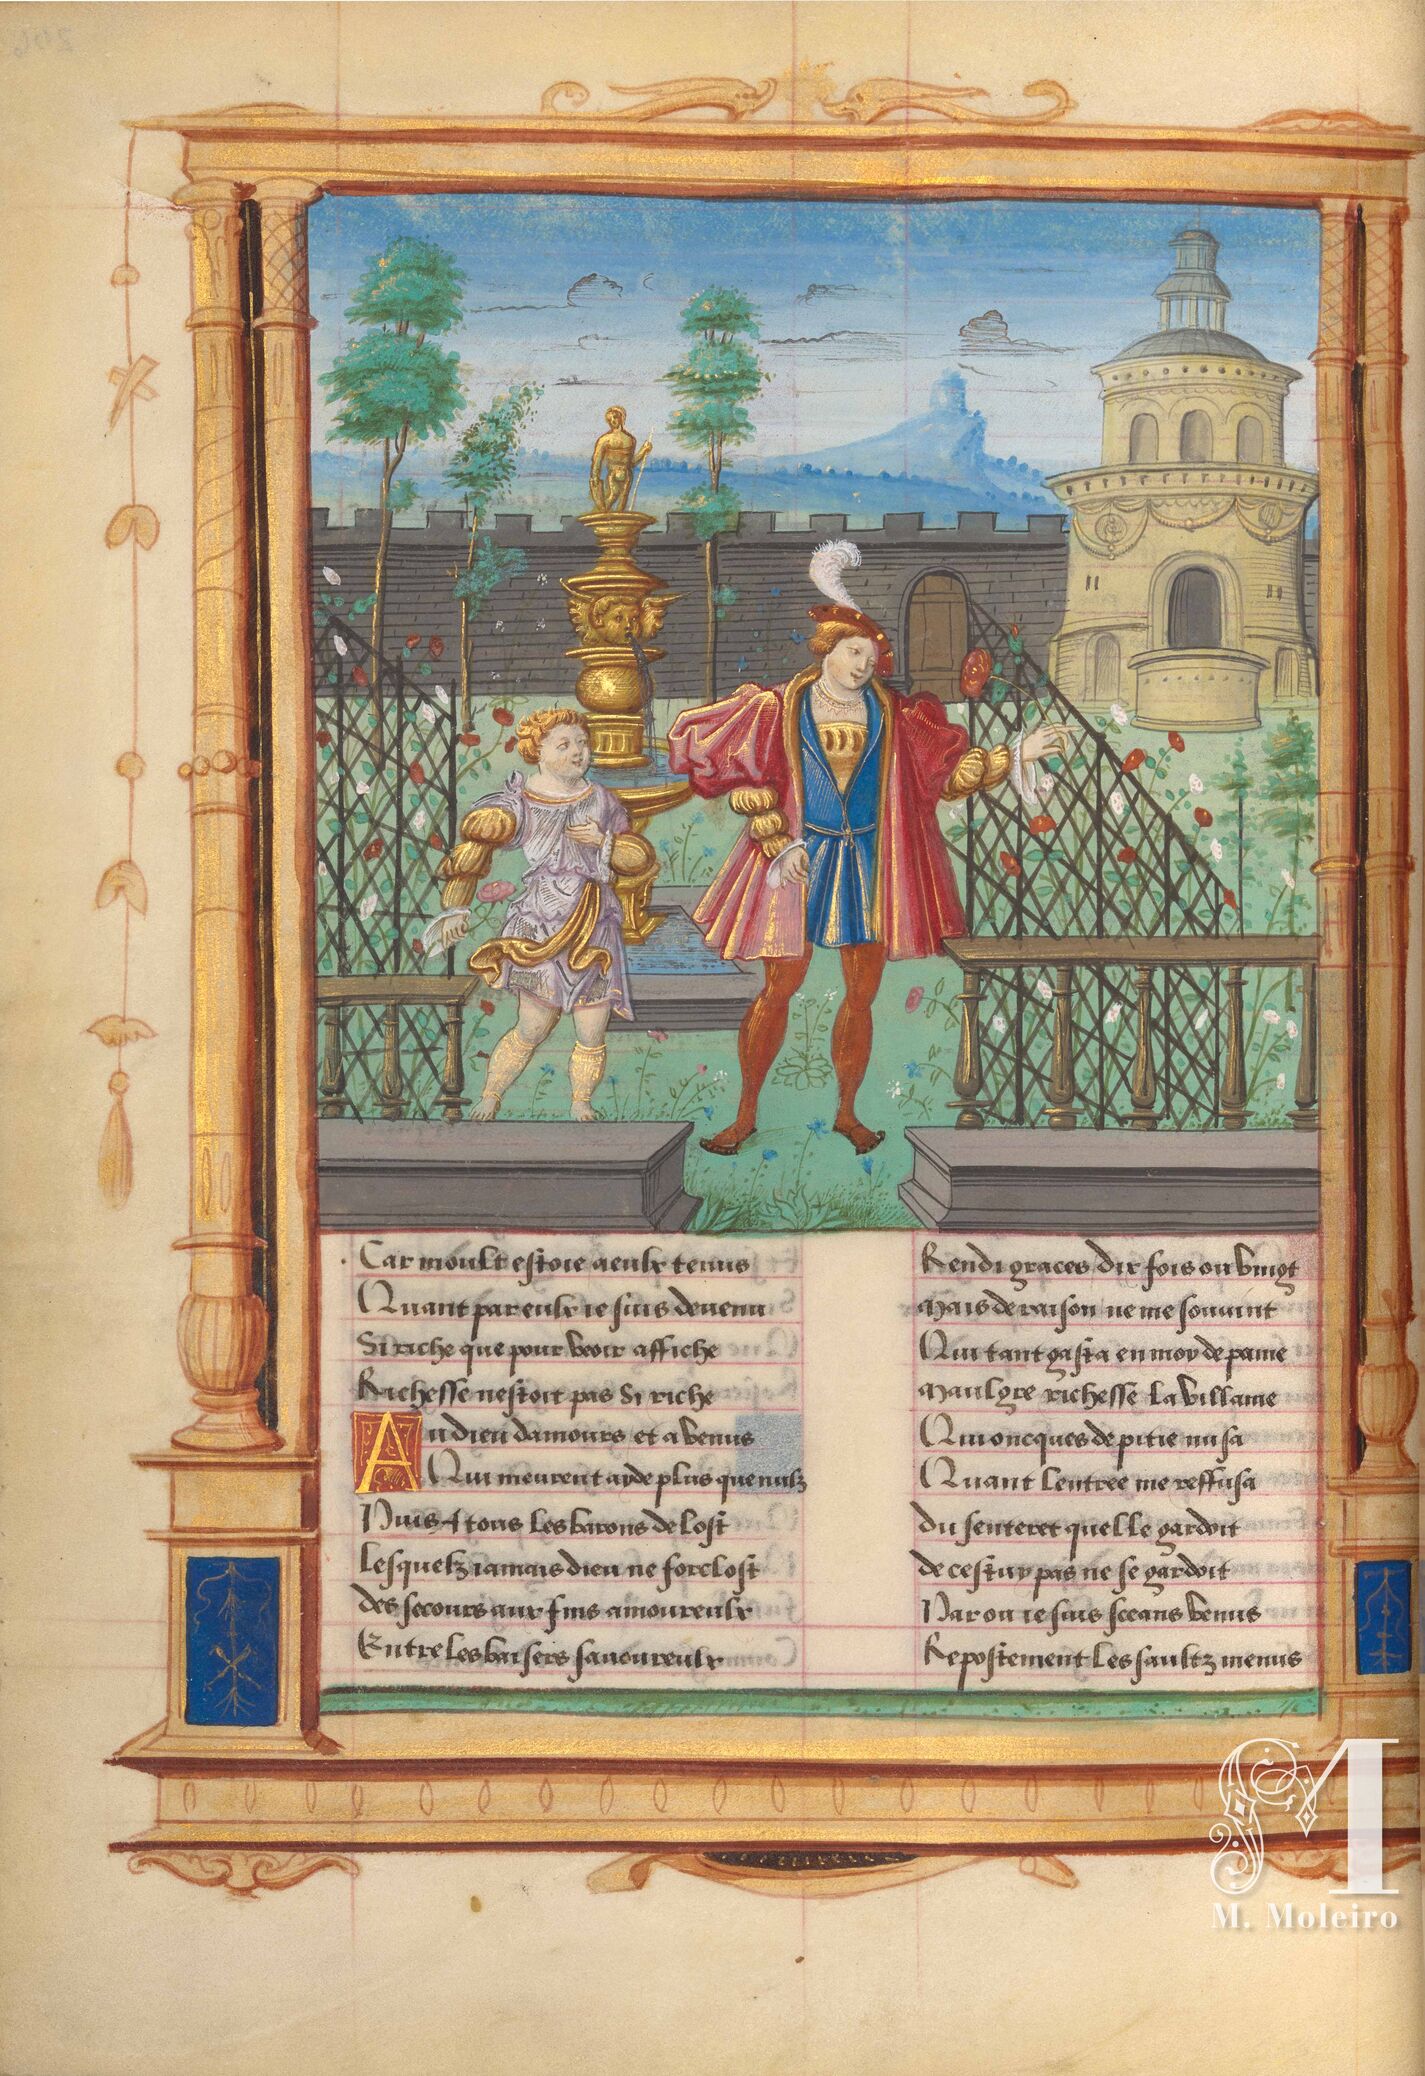 Car moult estoie a eulx tenus
Quant par eulx ie suis devenu
Si riche que pour veoir affiche
Richesse nestoit pas si riche
Au dieu damours et a venus
Qui meurent ayde plus que nulz
Puis a tous les barons de lost
Lesquelz iamais dieu ne forclost
des secours aux fins amoureulx
Entre les baisers savoureulx
Rendi graces dix fois ou vingt
Mais de raison ne me souvint
Qui tant gasta en moy de paine
Maulgre richesse la villaine
Qui oncques de pitie nusa
Quant lentree me reffusa
du senteret quelle gardoit
de cestuy pas ne se gardoit
Par ou ie suis sceans venus
Repostement les saultz menus
M. Moleiro